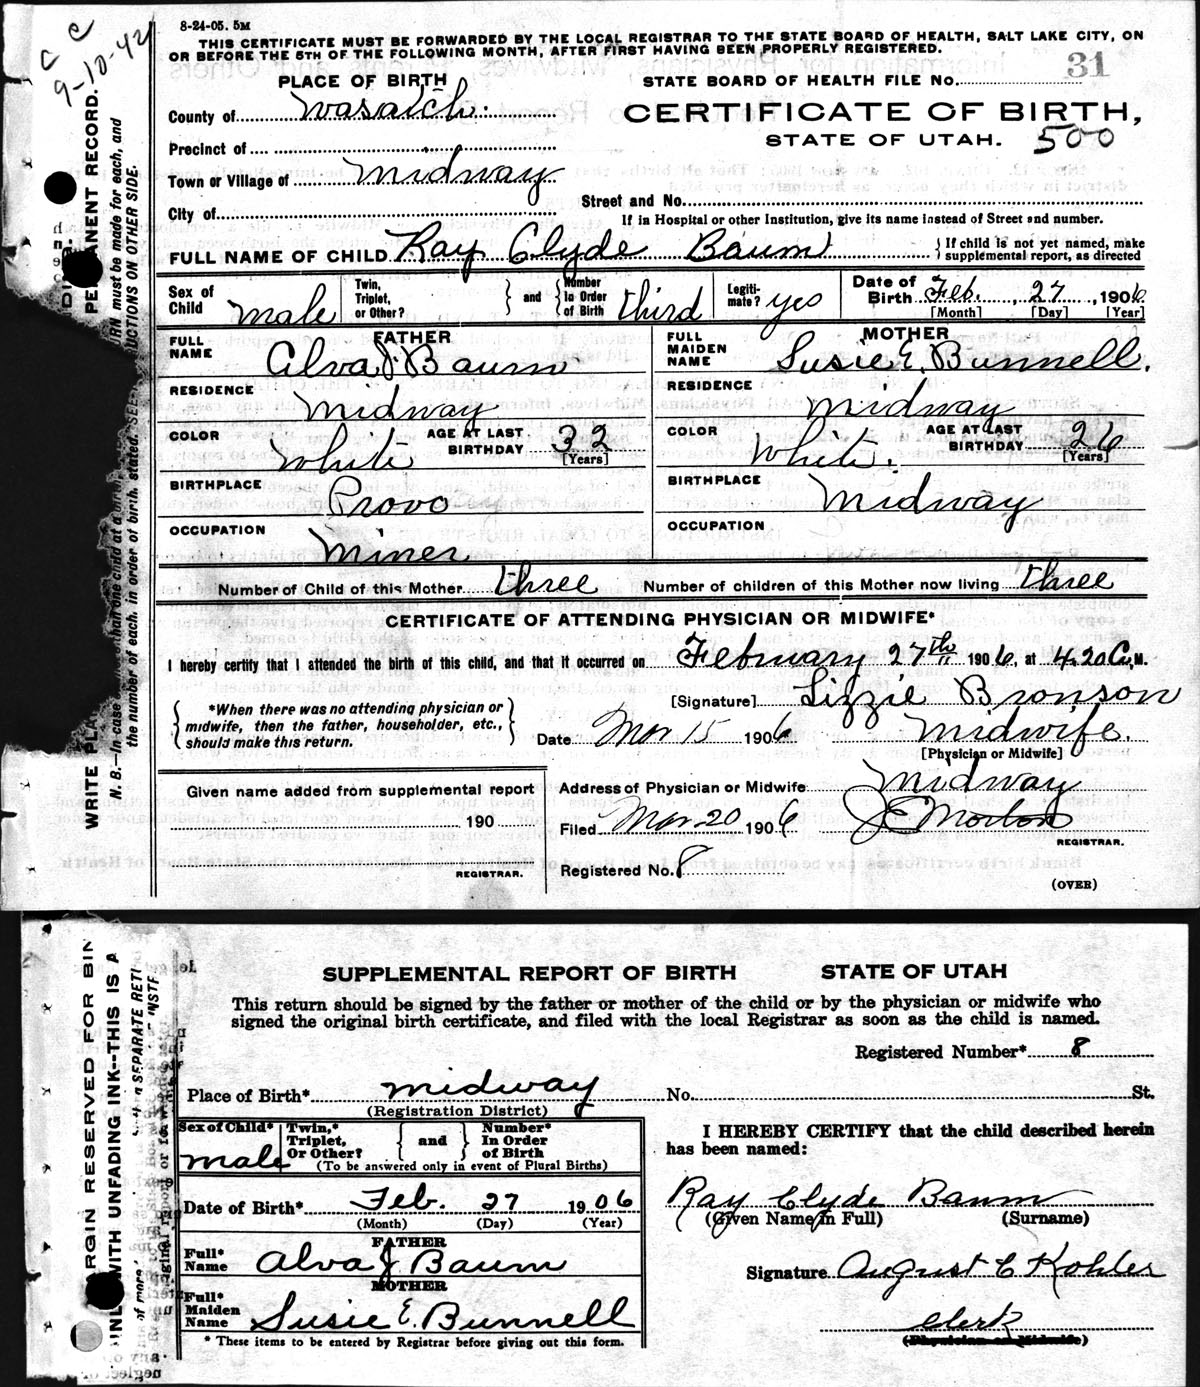 c c
9-10-42
8-24-05. 5M
THIS CERTIFICATE MUST BE FORWARDED BY THE LOCAL REGISTRAR TO THE STATE BOARD OF HEALTH, SALT LAKE CITY, ON
OR BEFORE THE 5TH OF THE FOLLOWING MONTH, AFTER FIRST HAVING BEEN PROPERLY REGISTERED.
PLACE OF BIRTH
STATE BOARD OF HEALTH FILE No. 31
County of Wasatch.
CERTIFICATE OF BIRTH,
STATE OF UTAH. 500
Precinct of
Town or Village of Midway
Street and No.
City of
If in Hospital or other Institution, give its name instead of Street and number.
FULL NAME OF CHILD Ray Clyde Baum
} If child is not yet named, make
supplemental report, as directed
Sex of Child male
Twin, Triplet, or Other?
} and {
Number In Order of Birth third
Legiti-mate? yes
Date of Birth Feb. 27, 1906
[Month] [Day] [Year]
FATHER
FULL NAME Alva J. Baum
MOTHER
FULL MAIDEN NAME Susie E. Bunnell.
RESIDENCE Midway
RESIDENCE Midway
COLOR White
AGE AT LAST BIRTHDAY 32
[Years]
COLOR White.
AGE AT LAST BIRTHDAY 26
[Years]
BIRTHPLACE Provo
BIRTHPLACE Midway
OCCUPATION Miner
OCCUPATION
Number of Child of this Mother three Number of children of this Mother now living three
CERTIFICATE OF ATTENDING PHYSICIAN OR MIDWIFE*
I hereby certify that I attended the birth of this child, and that it occurred on February 27th 1906, at 4.20 a.M.
[Signature] Lizzie Bronson
{ *When there was no attending physician or
midwife, then the father, householder, etc.,
should make this return. }
Date Mar 15 1906 Midwife.
[Physician or Midwife]
Given name added from supplemental report
190
REGISTRAR.
Address of Physician or Midwife Midway
Filed Mar 20 1906 J E Morton
REGISTRAR.
Registered No. 8
(OVER)
SUPPLEMENTAL REPORT OF BIRTH STATE OF UTAH
This return should be signed by the father or mother of the child or by the physician or midwife who
signed the original birth certificate, and filed with the local Registrar as soon as the child is named.
Registered Number* 8
Place of Birth* Midway No. St.
(Registration District)
Sex of Child* male
Twin,* Triplet, Or Other?
{ and }
Number* In Order of Birth
(To be answered only in event of Plural Births)
I HEREBY CERTIFY that the child described herein
has been named:
Date of Birth* Feb. 27 1906
(Month) (Day) (Year)
Ray Clyde Baum
(Given Name in Full) (Surname)
FATHER
Full* Name Alva J Baum
MOTHER
Full* Maiden Name Susie E. Bunnell
Signature August E Kohler
Clerk
(Physician or Midwife)
* These items to be entered by Registrar before giving out this form.